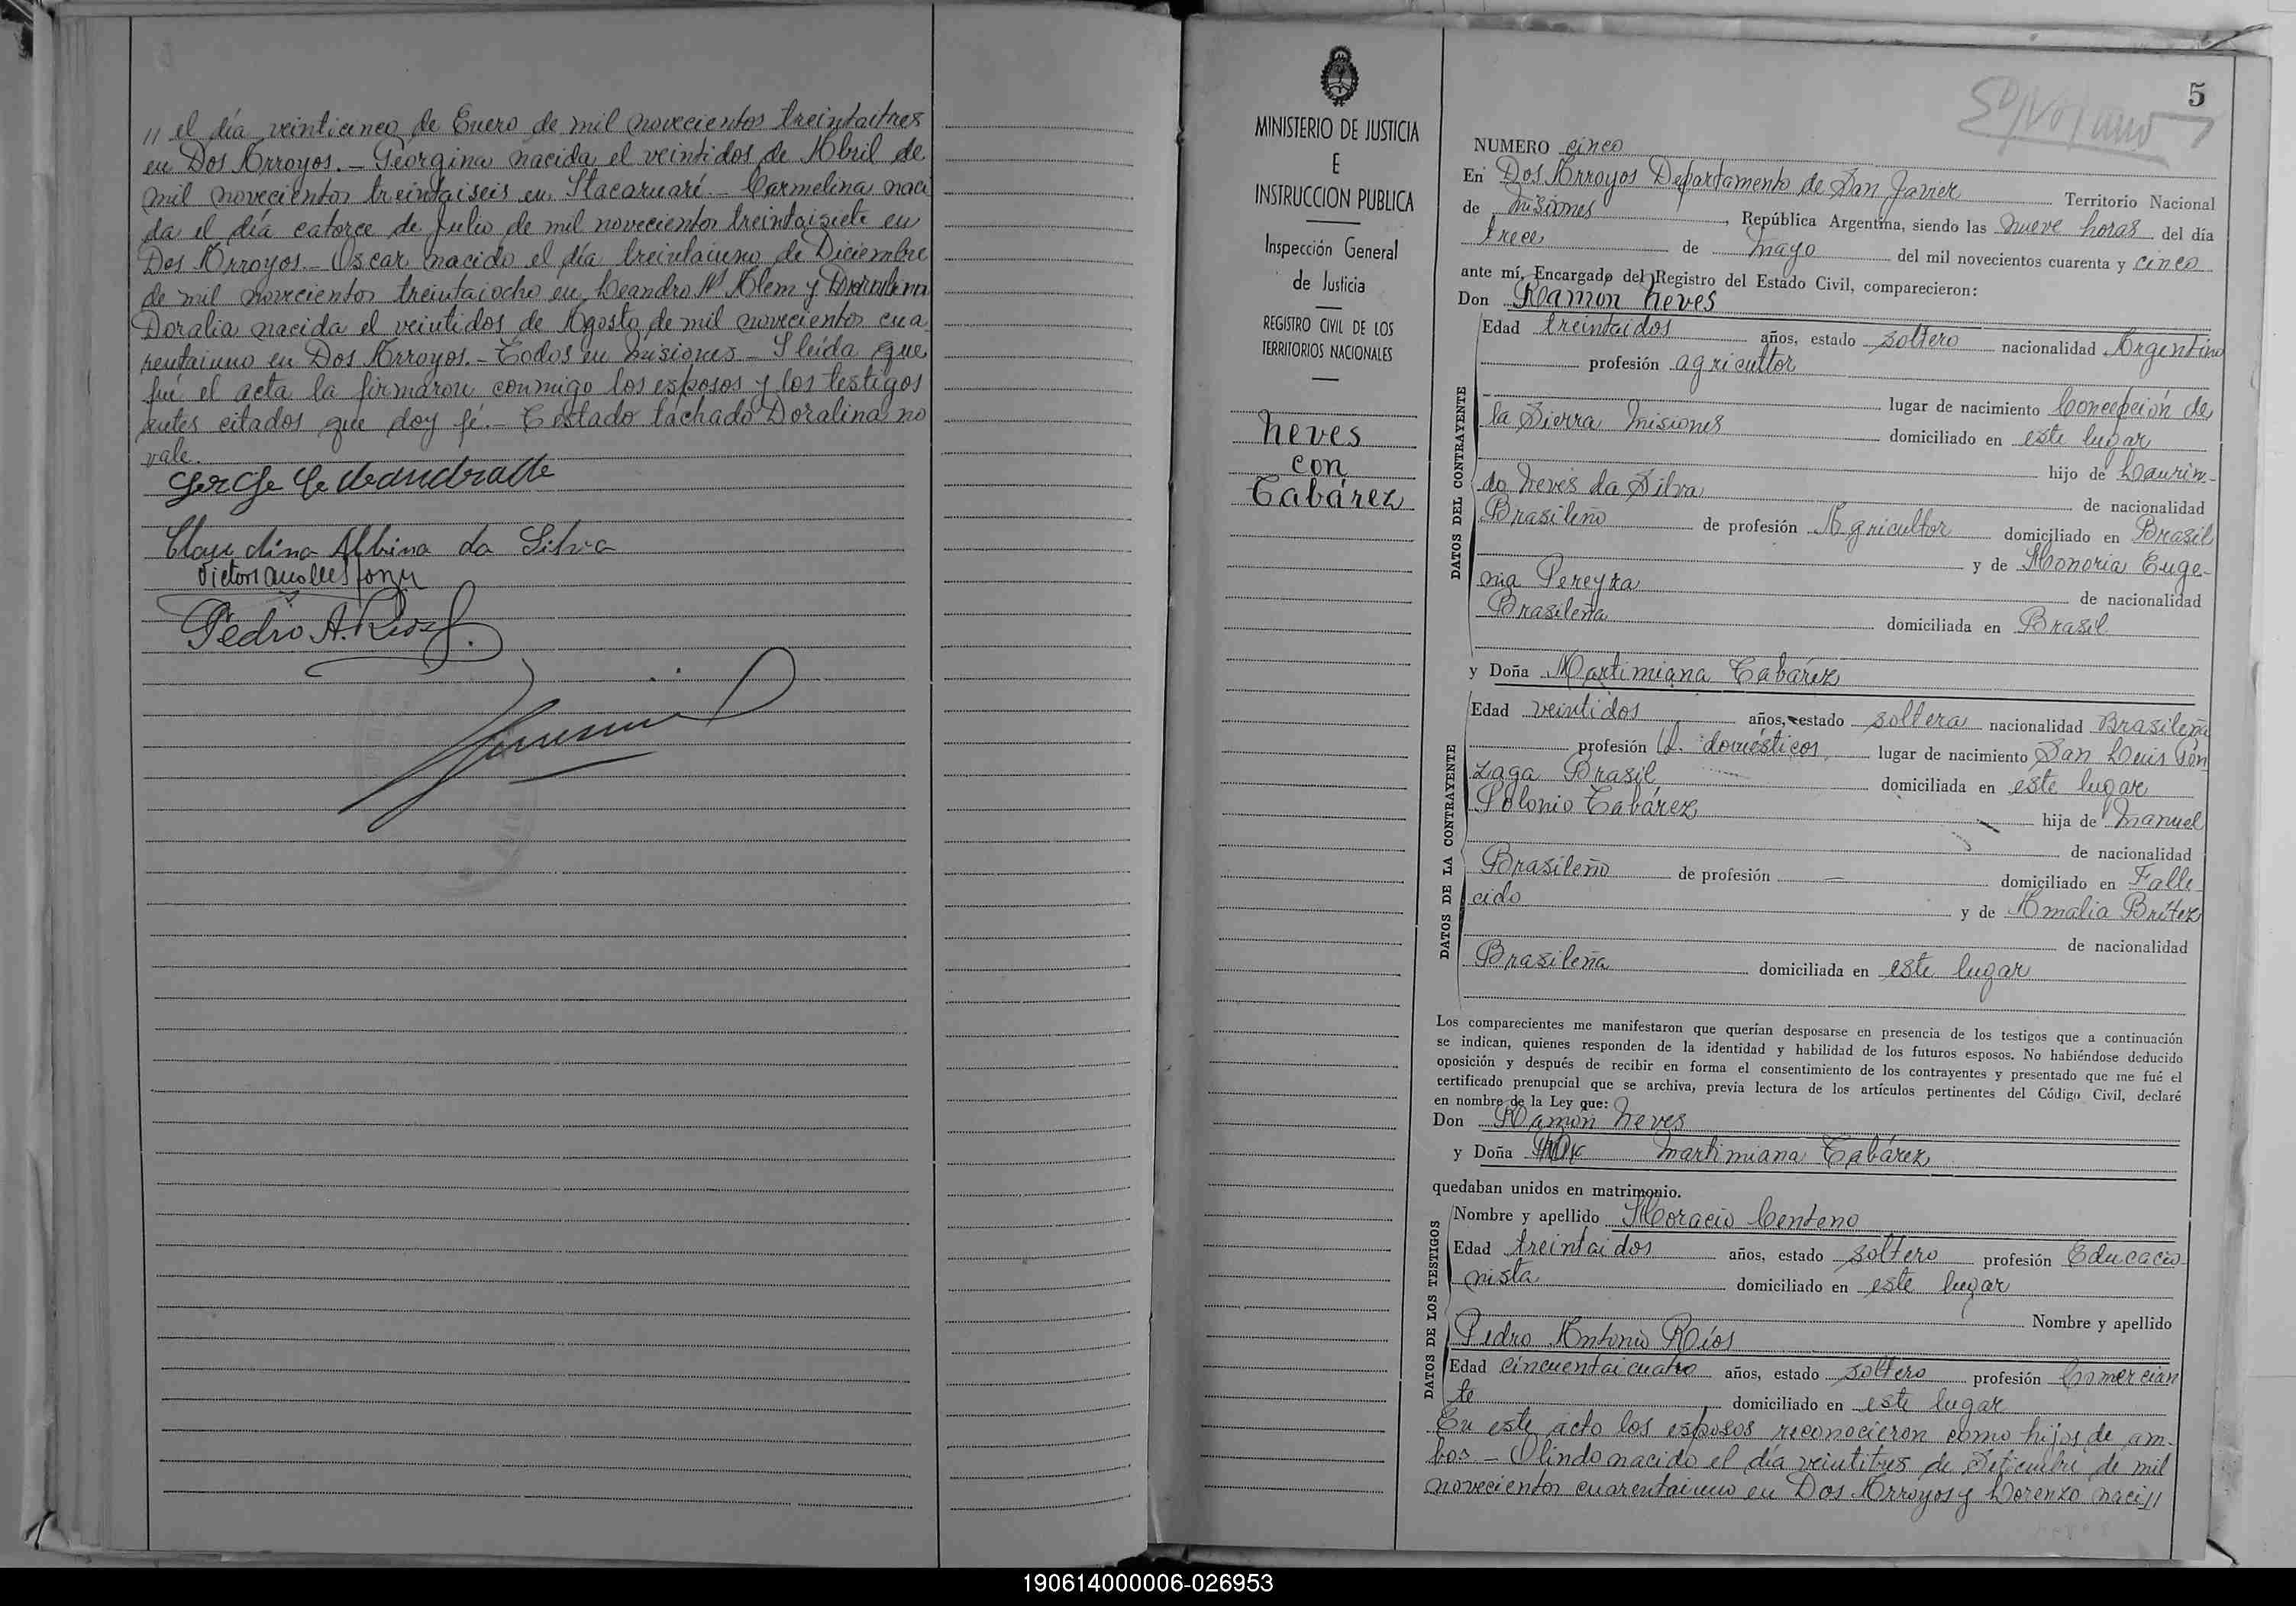 // el día veinticinco de Enero de mil novecientos treintaitres
en Dos Arroyos.- Georgina nacida el veintidos de Abril de
mil novecientos treintaiseis en Itacaruaré.- Carmelina naci
da el día catorce de Julio de mil novecientos treintaisiete en
Dos Arroyos.- Oscar nacido el día treintaiuno de Diciembre
de mil novecientos treintaiocho en Leandro N Alem y
Doralia nacida el veintidos de Agosto de mil novecientos cua
rentaiuno en Dos Arroyos.- Todos en Misiones.- I leída que
fué el acta la firmaron conmigo los esposos y los testigos
antes citados que doy fé.- Testado tachado Doralina no
vale.
Claudina Albina da Silva
Pedro A. Rios
MINISTERIO DE JUSTICIA
E
INSTRUCCION PUBLICA
Inspección General
de Justicia
REGISTRO CIVIL DE LOS
TERRITORIOS NACIONALES
Neves
con
Tabárez
5
NUMERO cinco
En Dos Arroyos Departamento de San Javier Territorio Nacional
de Misiones, República Argentina, siendo las nueve horas del día
trece de mayo del mil novecientos cuarenta y cinco
ante mí, Encargado del Registro del Estado Civil, comparecieron:
Don Ramón Neves
DATOS DEL CONTRAYENTE
Edad treintaidos años, estado soltero nacionalidad Argentino
profesión agricultor
lugar de nacimiento Concepción de
la Sierra Misiones domiciliado en este lugar
hijo de Laurin-
do Neves da Silva de nacionalidad
Brasileño de profesión Agricultor domiciliado en Brasil
y de Honoria Euge-
nia Pereyra de nacionalidad
Brasileña domiciliada en Brasil
y Doña Martimiana Tabárez
DATOS DE LA CONTRAYENTE
Edad veintidos años, estado soltera nacionalidad Brasileña
profesión Q. domésticos lugar de nacimiento San Luis Gon
zaga Brasil domiciliada en este lugar
hija de Manuel
Polonio Tabárez de nacionalidad
Brasileño de profesión — domiciliado en Falle
cido y de Amalia Brítez
de nacionalidad
Brasileña domiciliada en este lugar
Los comparecientes me manifestaron que querían desposarse en presencia de los testigos que a continuación
se indican, quienes responden de la identidad y habilidad de los futuros esposos. No habiéndose deducido
oposición y después de recibir en forma el consentimiento de los contrayentes y presentado que me fué el
certificado prenupcial que se archiva, previa lectura de los artículos pertinentes del Código Civil, declaré
en nombre de la Ley que:
Don Ramón Neves
y Doña Martimiana Tabárez
quedaban unidos en matrimonio.
DATOS DE LOS TESTIGOS
Nombre y apellido Horacio Centeno
Edad treintaidos años, estado soltero profesión Educacio-
nista domiciliado en este lugar
Nombre y apellido
Pedro Antonio Ríos
Edad cincuentaicuatro años, estado soltero profesión Comercian
te domiciliado en este lugar
En este acto los esposos reconocieron como hijos de am-
bos - Olindo nacido el día veintitres de Setiembre de mil
novecientos cuarentaiuno en Dos Arroyos y Lorenzo naci//
190614000006-026953